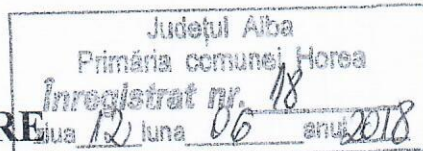 Județul Alba
Primăria comunei Horea
Înregistrat nr. 18
RE
ziua 12 luna 06 anul 2018